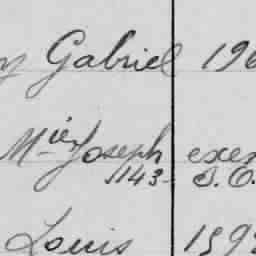 y Gabriel 196
Mier Joseph exem
1143- S.O.
Louis 1592